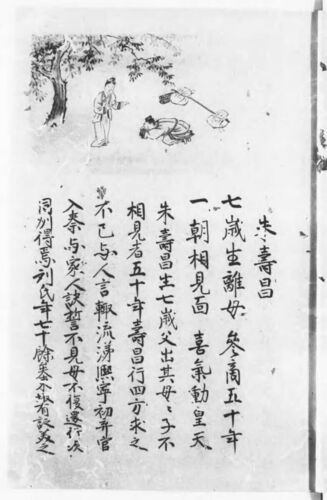 朱壽昌
七歲生離母 參商五十年
一朝相見面 喜氣動皇天
朱壽昌生七歲父出其母〻子不
相見者五十年壽昌行四方求之
不已与人言輒流涕熙寧初弃官
入秦与家人訣誓不見母不復還行次
同州得焉刘氏年七十餘